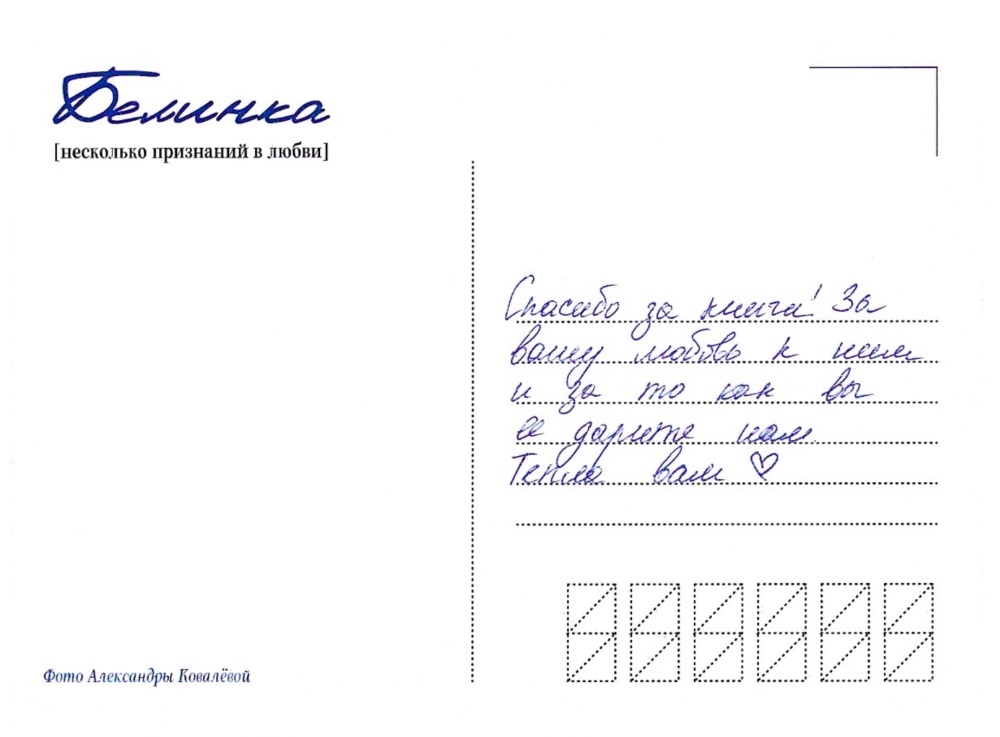 Белинка
[несколько признаний в любви]
Спасибо за книги! За
вашу любовь к ним
и за то как вы
ее дарите нам.
Тепла вам ♡
Фото Александры Ковалёвой